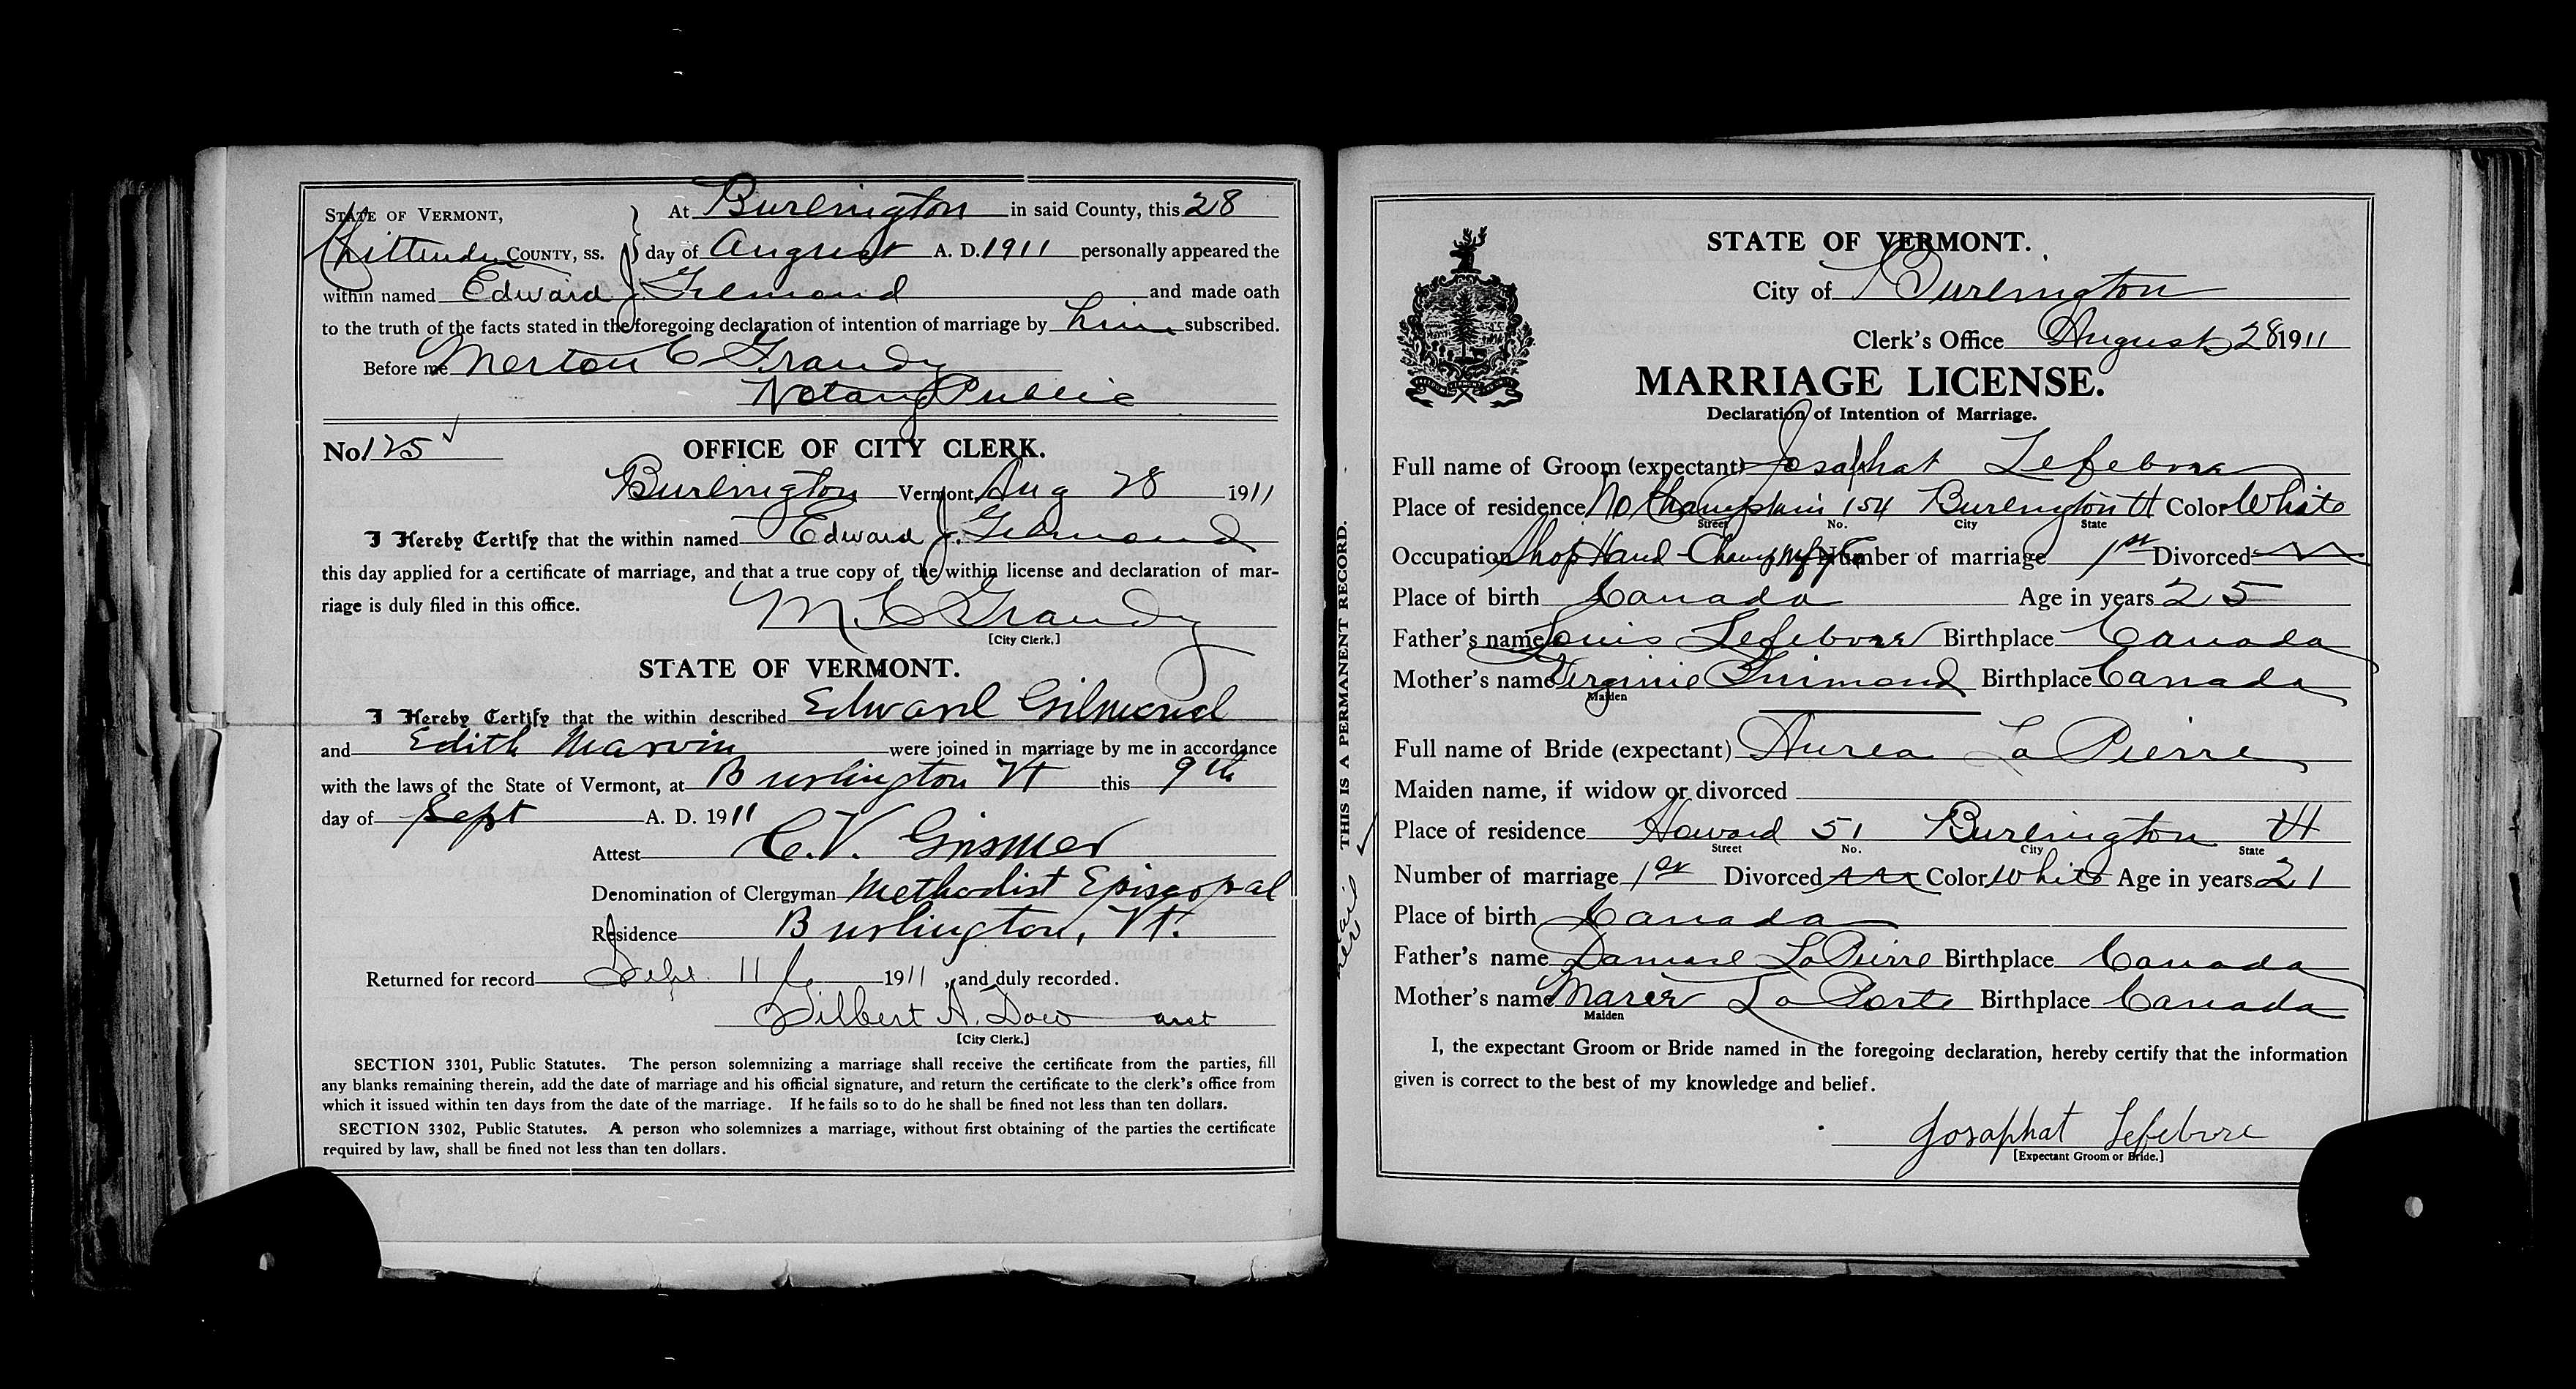 STATE OF VERMONT,
Chittenden COUNTY, SS.
At Burlington in said County, this 28
day of August A. D. 1911 personally appeared the
within named Edward J. Gilmond and made oath
to the truth of the facts stated in the foregoing declaration of intention of marriage by him subscribed.
Before me Merton C Grandy
Notary Public
No. 125 OFFICE OF CITY CLERK.
Burlington Vermont, Aug 28 1911
I Hereby Certify that the within named Edward J. Gilmond
this day applied for a certificate of marriage, and that a true copy of the within license and declaration of mar-
riage is duly filed in this office.
M C Grandy
[City Clerk.]
STATE OF VERMONT.
I Hereby Certify that the within described Edward Gilmond
and Edith Marvin were joined in marriage by me in accordance
with the laws of the State of Vermont, at Burlington Vt this 9th
day of Sept A. D. 1911
Attest C. V. Grismer
Denomination of Clergyman Methodist Episcopal
Residence Burlington, Vt.
Returned for record Sept. 11 1911, and duly recorded.
Gilbert A. Dow asst
[City Clerk.]
SECTION 3301, Public Statutes. The person solemnizing a marriage shall receive the certificate from the parties, fill
any blanks remaining therein, add the date of marriage and his official signature, and return the certificate to the clerk's office from
which it issued within ten days from the date of the marriage. If he fails so to do he shall be fined not less than ten dollars.
SECTION 3302, Public Statutes. A person who solemnizes a marriage, without first obtaining of the parties the certificate
required by law, shall be fined not less than ten dollars.
THIS IS A PERMANENT RECORD.
STATE OF VERMONT.
City of Burlington
Clerk's Office August 28 1911
MARRIAGE LICENSE.
Declaration of Intention of Marriage.
Full name of Groom (expectant) Josaphat Lefebvre
Place of residence No Champlain 154 Burlington Vt Color White
Street No. City State
Occupation Shop Hand Champ Mfg Co Number of marriage 1st Divorced
Place of birth Canada Age in years 25
Father's name Louis Lefebvre Birthplace Canada
Mother's name Virginie Guimond Birthplace Canada
Maiden
Full name of Bride (expectant) Aurea La Pierre
Maiden name, if widow or divorced
Place of residence Howard 51 Burlington Vt
Street No. City State
Number of marriage 1st Divorced Color White Age in years 21
Place of birth Canada
Father's name Damase La Pierre Birthplace Canada
Mother's name Marie La Porte Birthplace Canada
Maiden
I, the expectant Groom or Bride named in the foregoing declaration, hereby certify that the information
given is correct to the best of my knowledge and belief.
Josaphat Lefebvre
[Expectant Groom or Bride.]